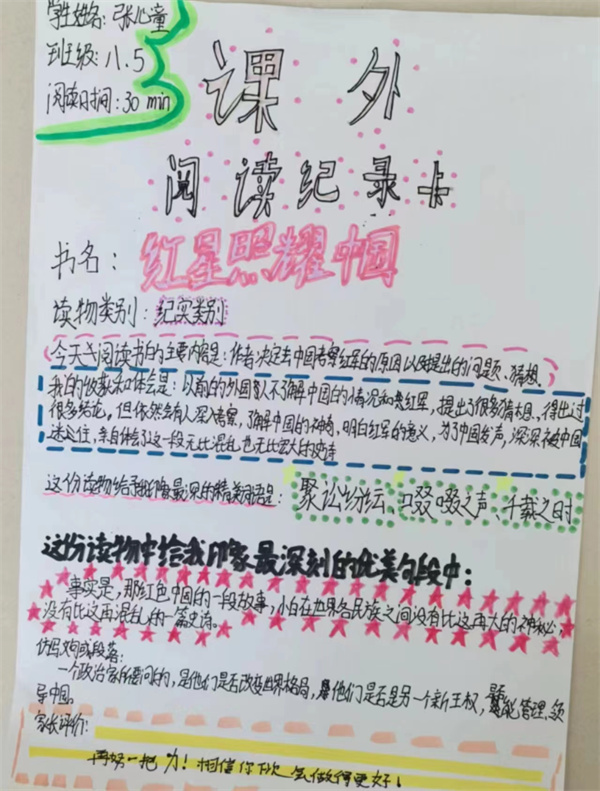 学生姓名:张心潼
班级:八.5
阅读时间:30 min
课外
阅读纪录卡
书名:红星照耀中国
读物类别:纪实类别
今天我阅读书的主要内容是:作者决定去中国考察红军的原因以及提出的问题、猜想。
我的收获和体会是:以前的外国人不了解中国的情况和红军,提出了很多猜想,得出过
很多结论。但依然有人深入考察,了解中国的神奇,明白红军的意义,为了中国发声,深深被中国
迷住,亲自体会了这一段无比混乱也无比宏大的史诗
这份读物给予我印象最深的精美词语是:聚讼纷纭、啜啜之声、千载之时
这份读物中给我印象最深刻的优美句段中:
事实是,那红色中国的一段故事,小白在世界各民族之间没有比这再大的神秘,
没有比这再混乱的一篇史诗。
仿写句或段落:
一个政治家所要问的,是他们是否改变世界格局,是他们是否是另一个新王权,能管理、领
导中国。
家长评价:
再努一把力!相信你下次会做得更好!